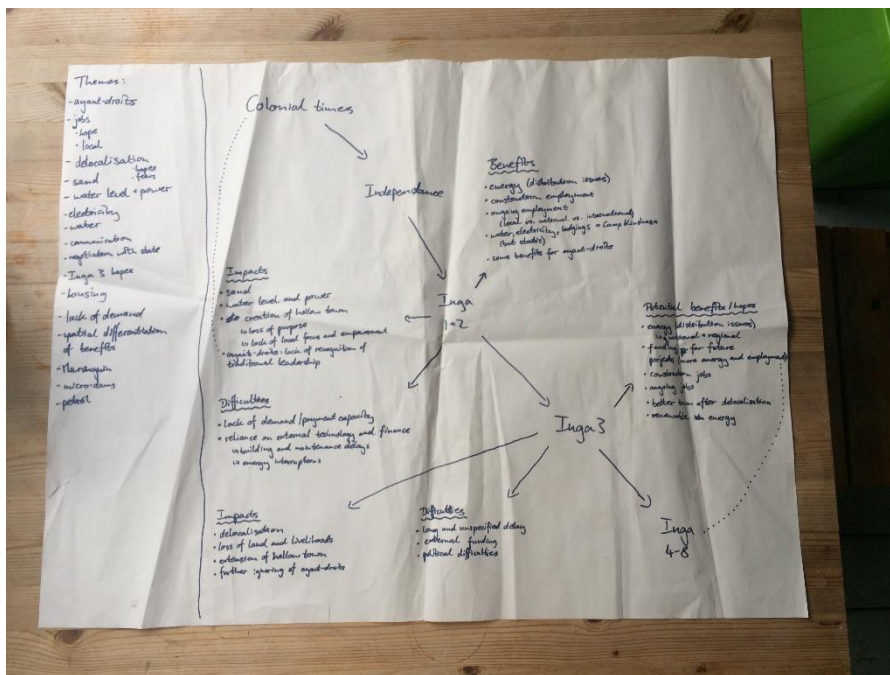 Themes:
- ayant-droits
- jobs
· hope
· local
- delocalisation
- sand · hopes
· fears
- water level + power
- electricity
- water
- communication
- negotiation with state
- Inga 3 hopes
- housing
- lack of demand
- spatial differentiation
of benefits
- micro-dams
- petrol
Colonial times
Independance
Inga
1+2
Benefits
· energy (distribution issues)
· construction employment
· ongoing employment
(local vs. national vs. international)
· water, electricity, lodgings → Camp Kinshasa
(but static)
· some benefits for ayant-droits
Impacts
· sand
· water level and power
· creation of hollow town
↳ loss of purpose
↳ lack of local focus and empowerment
· ayants-droits: lack of recognition of
traditional leadership
Difficulties
· lack of demand/payment capacity
· reliance on external technology and finance
↳ building and maintenance delays
↳ energy interruptions
Inga 3
Potential benefits/hopes
· energy (distribution issues)
↳ national + regional
· funding for future
projects (more energy and employment)
· construction jobs
· ongoing jobs
· better town after delocalisation
· renewable energy
Impacts
· delocalisation
· loss of land and livelihoods
· extension of hollow town
· further ignoring of ayant-droits
Difficulties
· long and unspecified delay
· external funding
· political difficulties
Inga
4-8